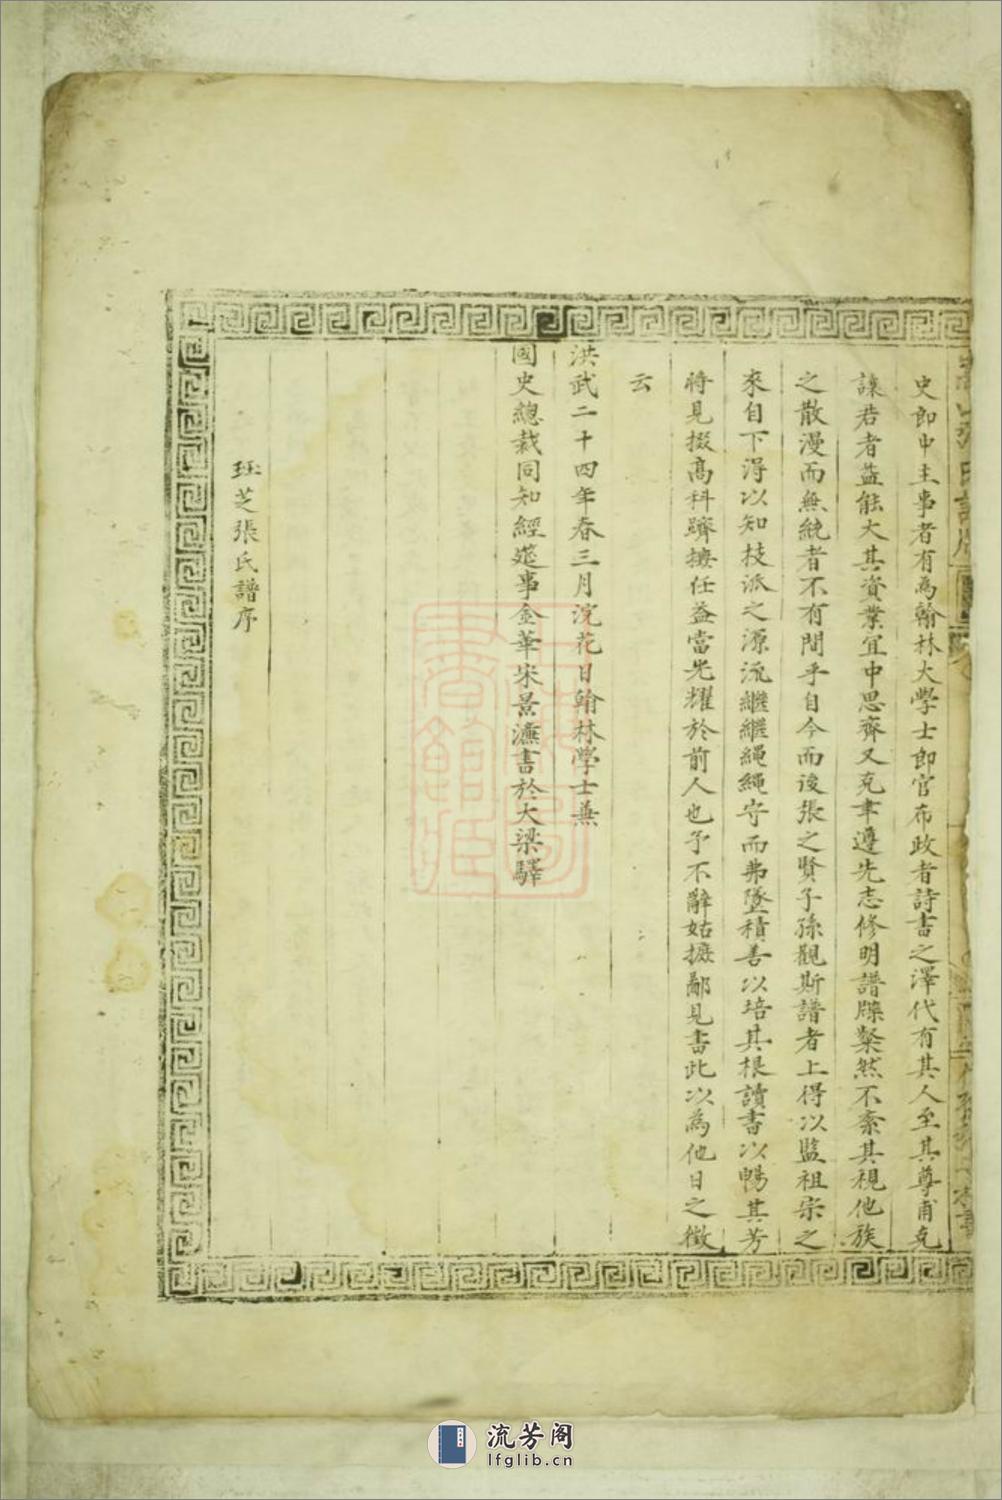 史郎中主事者有為翰林大學士郎官布政者詩書之澤代有其人至其尊甫克
讓君者益能大其資業宜中思齊又克聿遵先志修明譜牒粲然不紊其視他族
之散漫而無統者不有間乎自今而後張之賢子孫觀斯譜者上得以監祖宗之
來自下得以知技派之源流繼繼繩繩守而弗墜積善以培其根讀書以暢其芳
將見掇高科躋擡任益當光耀於前人也予不辭姑摭鄙見書此以為他日之徵
云
洪武二十四年春三月浣花日翰林學士兼
國史總裁同知經筵事金華宋景濂書於大梁驛
珏芝張氏譜序
流芳阁
lfglib.cn